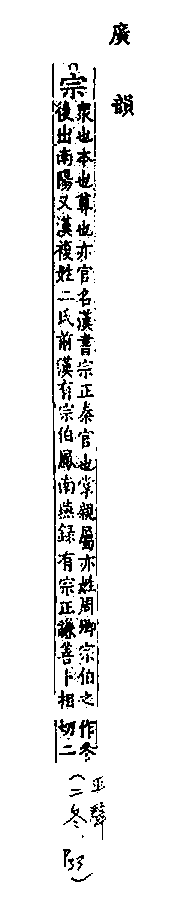 廣韻
宗
衆也本也尊也亦官名漢書宗正秦官也掌親屬亦姓周卿宗伯之
後出南陽又漢複姓二氏前漢有宗伯鳳南燕錄有宗正謙善卜相
作冬
切二
平聲
(二冬,P33)